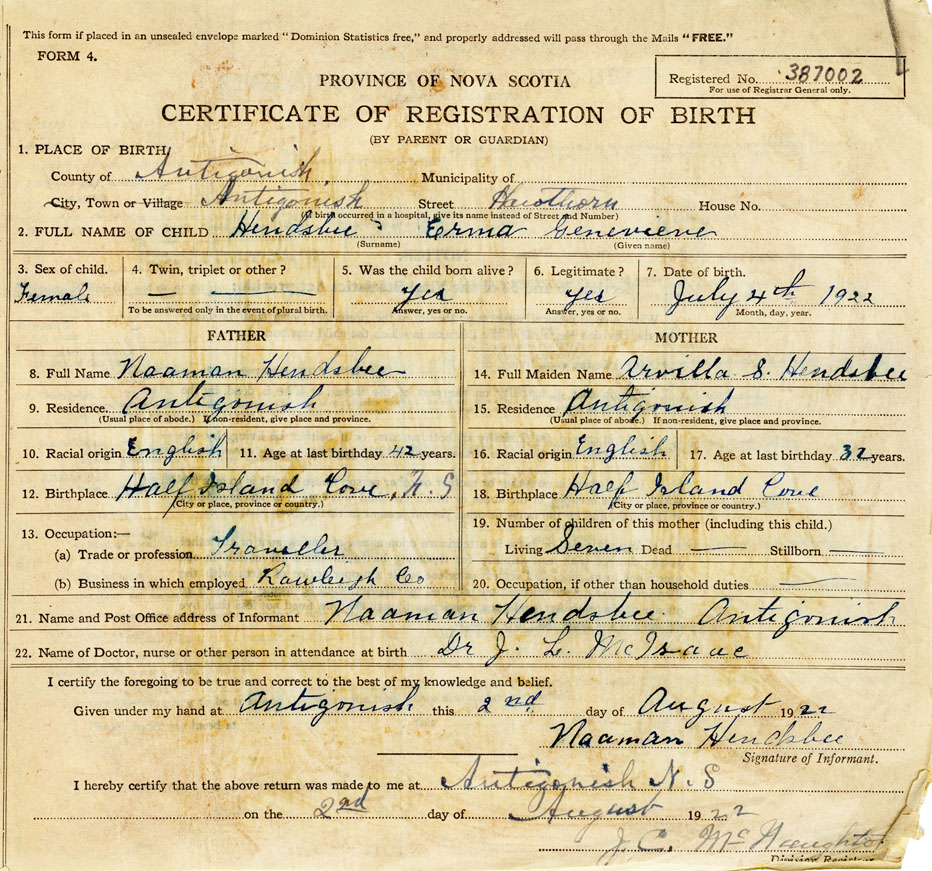 This form if placed in an unsealed envelope marked "Dominion Statistics free," and properly addressed will pass through the Mails "FREE."
FORM 4.
PROVINCE OF NOVA SCOTIA
Registered No. 387002
For use of Registrar General only.
CERTIFICATE OF REGISTRATION OF BIRTH
(BY PARENT OR GUARDIAN)
1. PLACE OF BIRTH
County of Antigonish Municipality of
City, Town or Village Antigonish Street Hawthorn House No.
(If birth occurred in a hospital, give its name instead of Street and Number)
2. FULL NAME OF CHILD Hendsbee Erma Genevieve
(Surname) (Given name)
3. Sex of child. 4. Twin, triplet or other? 5. Was the child born alive? 6. Legitimate? 7. Date of birth.
Female — — Yes Yes July 4th 1922
To be answered only in the event of plural birth. Answer, yes or no. Answer, yes or no. Month, day, year.
FATHER MOTHER
8. Full Name Naaman Hendsbee 14. Full Maiden Name Arvilla S. Hendsbee
9. Residence. Antigonish 15. Residence Antigonish
(Usual place of abode.) If non-resident, give place and province. (Usual place of abode.) If non-resident, give place and province.
10. Racial origin English 11. Age at last birthday 42 years. 16. Racial origin English 17. Age at last birthday 32 years.
12. Birthplace Half Island Cove, N. S 18. Birthplace Half Island Cove
(City or place, province or country.) (City or place, province or country.)
13. Occupation:— 19. Number of children of this mother (including this child.)
(a) Trade or profession Traveller Living Seven Dead — Stillborn —
(b) Business in which employed Rawleigh Co 20. Occupation, if other than household duties —
21. Name and Post Office address of Informant Naaman Hendsbee Antigonish
22. Name of Doctor, nurse or other person in attendance at birth Dr J. L. McIsaac
I certify the foregoing to be true and correct to the best of my knowledge and belief.
Given under my hand at Antigonish this 2nd day of August 1922
Naaman Hendsbee
Signature of Informant.
I hereby certify that the above return was made to me at Antigonish N. S
on the 2nd day of August 1922
J. C. McNaughton
Division Registrar